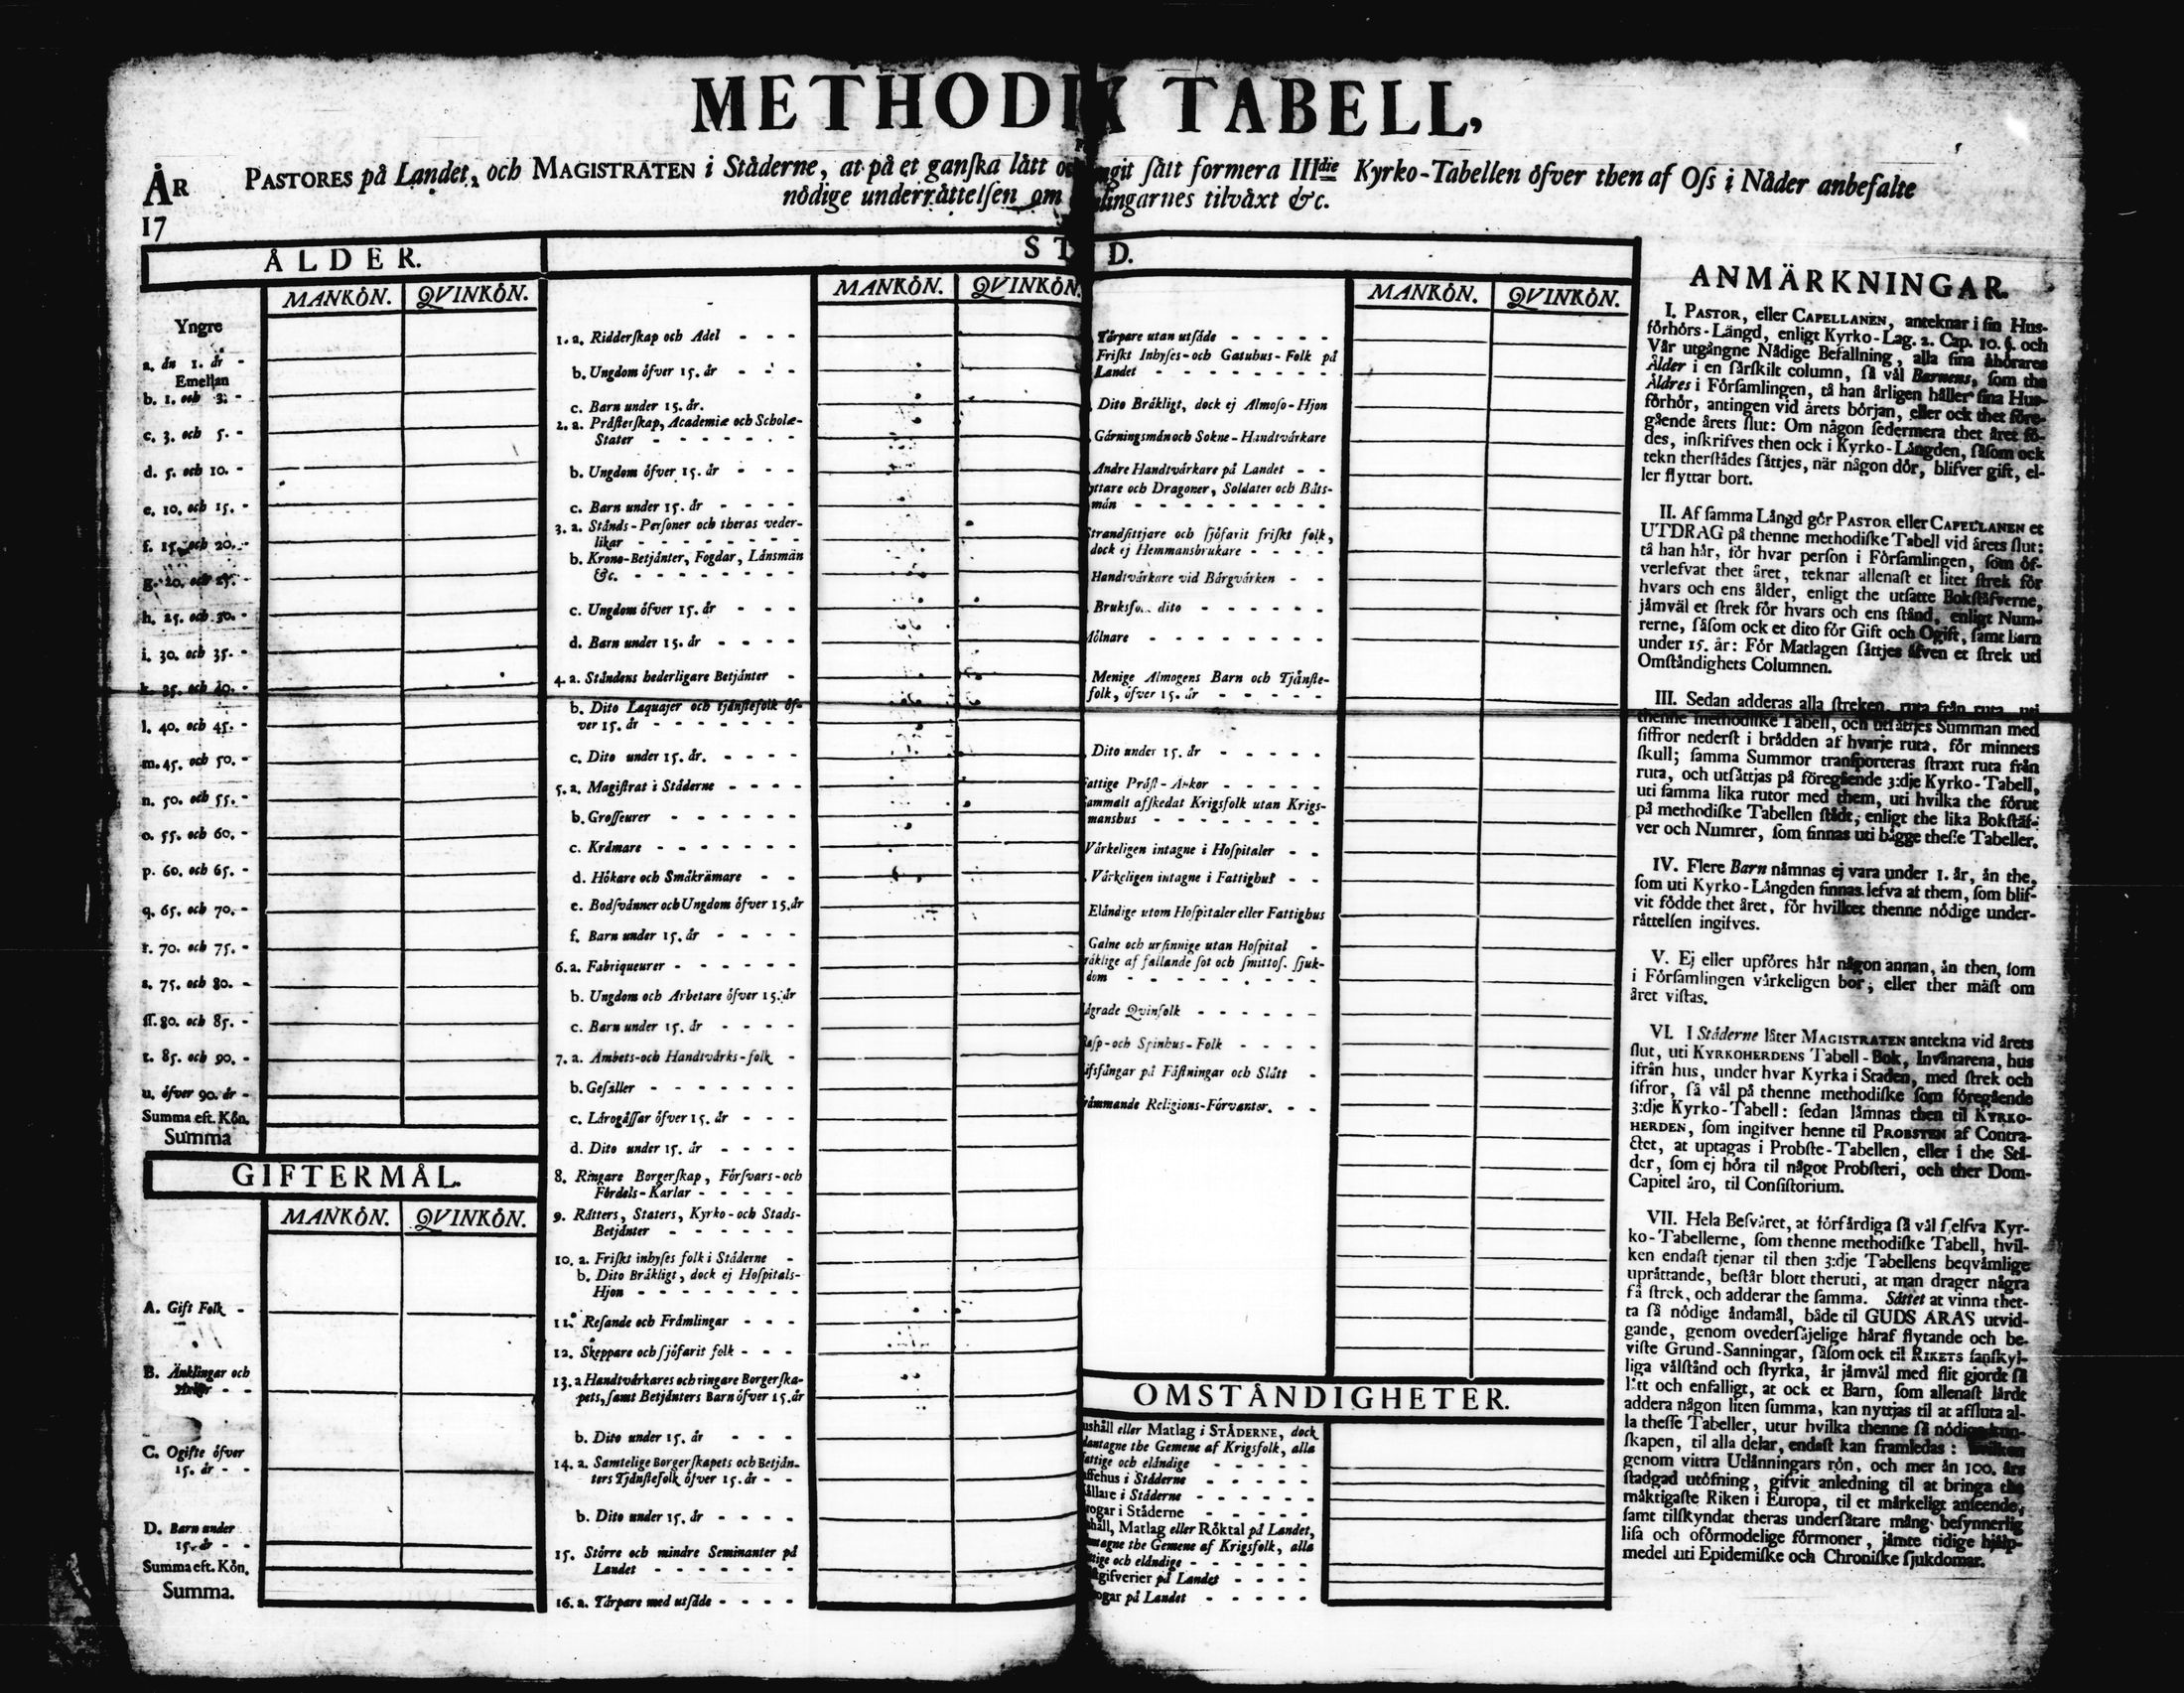 METHODIX TABELL,
ÅR
17
PASTORES på Landet, och MAGISTRATEN i Ståderne, at på et ganſka lått
ſått formera IIIdie Kyrko-Tabellen ófver then af Oſs i Nåder anbefalte
nôdige underråttelſen om
tilvåxt &c.
ÅLDER.
MANKÖN. QVINKÖN.
Yngre
a. ån 1. år -
Emellan
b. 1. och 3. -
c. 3. och 5. -
d. 5. och 10. -
e. 10. och 15. -
f. 15. och 20. -
g. 20. och 25. -
h. 25. och 30. -
i. 30. och 35. -
k. 35. och 40. -
l. 40. och 45. -
m. 45. och 50. -
n. 50. och 55. -
o. 55. och 60. -
p. 60. och 65. -
q. 65. och 70. -
r. 70. och 75. -
s. 75. och 80. -
ſſ. 80. och 85. -
t. 85. och 90. -
u. ófver 90. år -
Summa eft. Kôn.
Summa
GIFTERMÅL.
MANKÖN. QVINKÖN.
A. Gift Folk -
B. Änklingar och
C. Ogifte ófver
15. år - -
D. Barn under
15. år - -
Summa eft. Kôn.
Summa.
MANKÖN. QVINKÖN.
1. a. Ridderſkap och Adel - - -
b. Ungdom ófver 15. år - - -
c. Barn under 15. år.
2. a. Pråſterſkap, Academiæ och Scholæ-
Stater - - - - - -
b. Ungdom ófver 15. år - - -
c. Barn under 15. år - - - -
3. a. Stånds-Perſoner och theras veder-
likar - - - - - - -
b. Krono-Betjånter, Fogdar, Lånsmån
&c. - - - - - - -
c. Ungdom ófver 15. år - - -
d. Barn under 15. år - - - -
4. a. Ståndens hederligare Betjånter -
b. Dito Laquajer och tjånſtefolk óf-
ver 15. år - - - - - -
c. Dito under 15. år. - - - -
5. a. Magiſtrat i Ståderne - - - -
b. Groſſeurer - - - - - -
c. Kråmare - - - - - -
d. Hókare och Småkråmare - -
e. Bodſvånner och Ungdom ófver 15. år
f. Barn under 15. år - - - -
6. a. Fabriqueurer - - - - - -
b. Ungdom och Arbetare ófver 15. år
c. Barn under 15. år - - - -
7. a. Ämbets-och Handtvårks-folk -
b. Geſåller - - - - - -
c. Lårogåſſar ófver 15. år - - -
d. Dito under 15. år - - - -
8. Ringare Borgerſkap, Fórſvars-och
Fórdels-Karlar - - - - -
9. Råtters, Staters, Kyrko-och Stads-
Betjånter - - - - - -
10. a. Friſkt inhyſes folk i Ståderne -
b. Dito Bråkligt, dock ej Hoſpitals-
Hjon - - - - - - -
11. Reſande och Fråmlingar - - -
12. Skeppare och ſjófarit folk - - -
13. a Handtvårkares och ringare Borgerſka-
pets, ſamt Betjånters Barn ófver 15. år
b. Dito under 15. år - - -
14. a. Samtelige Borgerſkapets och Betjån-
ters Tjånſtefolk ófver 15. år - -
b. Dito under 15. år - - - -
15. Stôrre och mindre Seminanter på
Landet - - - - - - -
16. a. Tårpare med utſåde - - - -
MANKÖN. QVINKÖN.
Tårpare utan utſåde - - - - -
Friſkt Inhyſes-och Gatuhus-Folk på
Landet - - - - - - - -
Dito Bråkligt, dock ej Almoſo-Hjon
Gårningsmån och Sokne-Handtvårkare
Andre Handtvårkare på Landet - -
och Dragoner, Soldater och Båts-
mån - - - - - - - -
Strandſittjare och ſjófarit friſkt folk,
dock ej Hemmansbrukare - - - -
Handtvårkare vid Bårgvårken - -
dito - - - - - -
Mólnare - - - - - - - -
Menige Almogens Barn och Tjånſte-
folk, ófver 15. år - - - - -
Dito under 15. år - - - - -
Fattige Pråſt-Änkor - - - - -
Gammalt afſkedat Krigsfolk utan Krigs-
manshus - - - - - - - -
Vårkeligen intagne i Hoſpitaler - -
Vårkeligen intagne i Fattighus - -
Elåndige utom Hoſpitaler eller Fattighus
Galne och urſinnige utan Hoſpital -
af fallande ſot och ſmittoſ. ſjuk-
dom - - - - - - - -
Qvinfolk - - - - - -
och Spinhus-Folk - - - -
på Fåſtningar och Slått -
Religions-Fórvanter. - -
OMSTÅNDIGHETER.
eller Matlag i STÅDERNE, dock
the Gemene af Krigsfolk, alla
och elåndige - - - - -
i Ståderne - - - - -
i Ståderne - - - - - -
i Ståderne - - - - -
Matlag eller Róktal på Landet,
the Gemene af Krigsfolk, alla
och elåndige - - - - - -
på Landet - - - -
på Landet - - - - -
ANMÄRKNINGAR.
I. PASTOR, eller CAPELLANEN, anteknar i ſin Hus-
fórhórs-Längd, enligt Kyrko-Lag. 2. Cap. 10. §. och
Vår utgångne Nådige Befallning, alla ſina åhórares
Ålder i en ſårſkilt column, ſå vål Barnens, ſom the
Äldres i Fórſamlingen, tå han årligen håller ſina Hus-
fórhór, antingen vid årets bórjan, eller ock thet fóre-
gående årets ſlut: Om någon ſedermera thet året fó-
des, inſkrifves then ock i Kyrko-Långden, ſåſom ock
tekn therſtådes ſåttjes, når någon dór, blifver gift, el-
ler flyttar bort.
II. Af ſamma Långd gór PASTOR eller CAPELLANEN et
UTDRAG på thenne methodiſke Tabell vid årets ſlut:
tå han hår, fór hvar perſon i Fórſamlingen, ſom óf-
verlefvat thet året, teknar allenaſt et litet ſtrek fór
hvars och ens ålder, enligt the utſatte Bokſtåfverne,
jåmvål et ſtrek fór hvars och ens ſtånd, enligt Num-
rerne, ſåſom ock et dito fór Gift och Ogift, ſamt Barn
under 15. år: Fór Matlagen ſåttjes åfven et ſtrek uti
Omſtåndighets Columnen.
III. Sedan adderas alla ſtreken, ruta från ruta, uti
thenne methodiſke Tabell, och utſåttjes Summan med
ſiffror nederſt i brådden af hvarje ruta, fór minnets
ſkull; ſamma Summor tranſporteras ſtraxt ruta från
ruta, och utſåttjas på fóregående 3:dje Kyrko-Tabell,
uti ſamma lika rutor med them, uti hvilka the fórut
på methodiſke Tabellen ſtådt, enligt the lika Bokſtåf-
ver och Numrer, ſom finnas uti bågge theſſe Tabeller.
IV. Flere Barn nåmnas ej vara under 1. år, ån the,
ſom uti Kyrko-Långden finnas lefva af them, ſom blif-
vit fódde thet året, fór hvilket thenne nódige under-
råttelſen ingifves.
V. Ej eller upfóres hår någon annan, ån then, ſom
i Fórſamlingen vårkeligen bor, eller ther måſt om
året viſtas.
VI. I Ståderne låter MAGISTRATEN antekna vid årets
ſlut, uti KYRKOHERDENS Tabell-Bok, Invånarena, hus
ifrån hus, under hvar Kyrka i Staden, med ſtrek och
ſifror, ſå vål på thenne methodiſke ſom fóregående
3:dje Kyrko-Tabell: ſedan låmnas then til KYRKO-
HERDEN, ſom ingifver henne til PROBSTEN af Contra-
ctet, at uptagas i Probſte-Tabellen, eller i the Stå-
der, ſom ej hóra til något Probſteri, och ther Dom-
Capitel åro, til Conſiſtorium.
VII. Hela Beſvåret, at fórfårdiga ſå vål ſelfva Kyr-
ko-Tabellerne, ſom thenne methodiſke Tabell, hvil-
ken endaſt tjenar til then 3:dje Tabellens beqvåmlige
upråttande, beſtår blott theruti, at man drager några
få ſtrek, och adderar the ſamma. Såttet at vinna thet-
ta ſå nódige åndamål, både til GUDS ÄRAS utvid-
gande, genom ovederſåjelige håraf flytande och be-
viſte Grund-Sanningar, ſåſom ock til RIKETS ſanſkyl-
liga vålſtånd och ſtyrka, år jåmvål med flit gjordt ſå
lått och enfalligt, at ock et Barn, ſom allenaſt lårdt
addera någon liten ſumma, kan nyttjas til at affluta al-
la theſſe Tabeller, utur hvilka thenne ſå nódige kun-
ſkapen, til alla delar, endaſt kan framledas:
genom vittra Utlånningars rón, och mer ån 100. års
ſtadgad utófning, gifvit anledning til at bringa the
måktigaſte Riken i Europa, til et mårkeligt anſeende,
ſamt tilſkyndat theras underſåtare mång beſynnerlig
liſa och ofórmodelige fórmoner, jåmte tidige hjålp-
medel uti Epidemiſke och Chroniſke ſjukdomar.